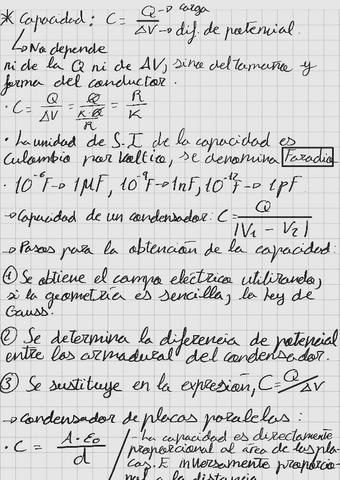 * Capacidad: C = Q → carga / ΔV → dif. de potencial.
↳ No depende
ni de la Q ni de ΔV, sino del tamaño y
forma del conductor.
· C = Q/ΔV = Q/(K·Q/R) = R/K
· La unidad de S.I de la capacidad es
culombio por voltio, se denomina Faradio
· 10⁻⁶F → 1μF, 10⁻⁹F → 1nF, 10⁻¹²F → 1pF
→ Capacidad de un condensador: C = Q/|V₁ - V₂|
→ Pasos para la obtención de la capacidad:
① Se obtiene el campo eléctrico utilizando,
si la geometría es sencilla, la ley de
Gauss.
② Se determina la diferencia de potencial
entre las armaduras del condensador.
③ Se sustituye en la expresión, C = Q/ΔV
→ Condensador de placas paralelas:
· C = A·ε₀/d / - La capacidad es directamente
proporcional al área de las pla-
cas. E inversamente proporcio-
nal a la distancia